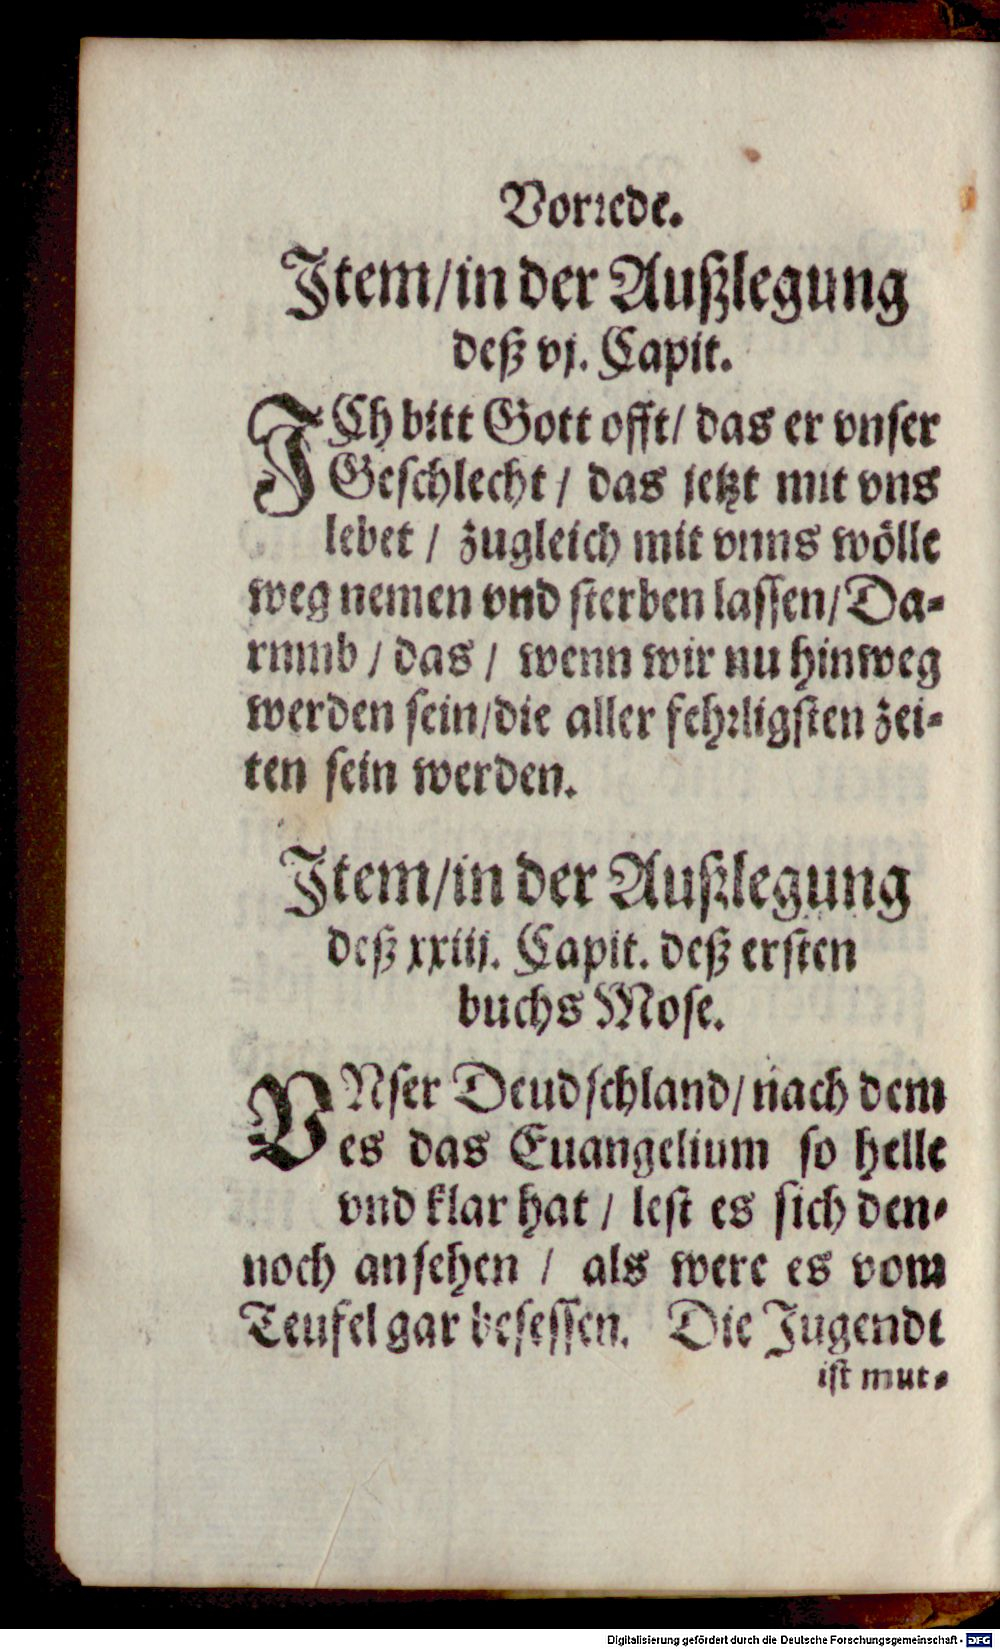 Vorrede.
Item/in der Außlegung
deß vj. Capit.
ICh bitt Gott offt/ das er vnser
Geschlecht / das jetzt mit vns
lebet / zugleich mit vnns wölle
weg nemen vnd sterben lassen/Da-
rumb / das / wenn wir nu hinweg
werden sein/die aller fehrligsten zei-
ten sein werden.
Item/in der Außlegung
deß xxiij. Capit. deß ersten
buchs Mose.
VNser Deudschland/nach dem
es das Euangelium so helle
vnd klar hat / lest es sich den-
noch ansehen / als were es vom
Teufel gar besessen. Die Jugendt
ist mut-
Digitalisierung gefördert durch die Deutsche Forschungsgemeinschaft - DFG